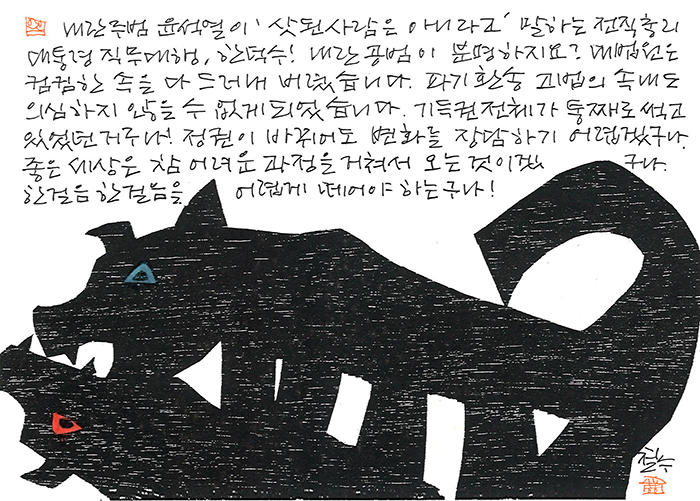 내란주범 윤석열이 '삿된사람은 아니라고' 말하는 전직총리
대통령 직무대행, 한덕수! 내란 공범이 분명하지요? 대법원은
컴컴한 속을 다 드러내 버렸습니다. 파기환송 고법의 속내도
의심하지 않을 수 없게 되었습니다. 기득권전체가 통째로 썩고
있었던 거구나! 정권이 바뀌어도 변화를 장담하기 어렵겠구나.
좋은 세상은 참 어려운 과정을 거쳐서 오는 것이겠구나.
한걸음 한걸음을 어렵게 떼어야 하는구나!
철수